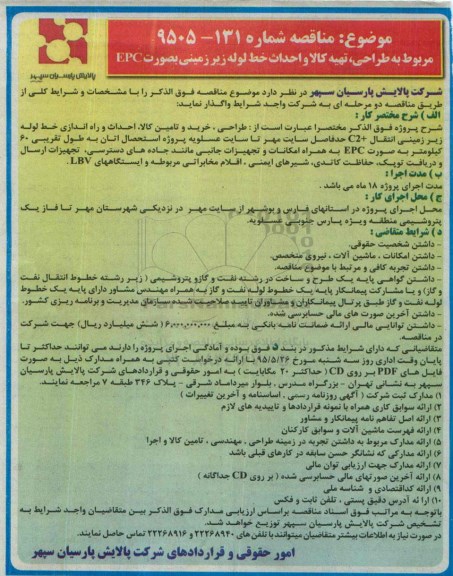 موضوع: مناقصه شماره ۱۳۱-۹۵۰۵
مربوط به طراحی، تهیه کالا و احداث خط لوله زیرزمینی بصورت EPC
پالایش پارسیان سپهر
شرکت پالایش پارسیان سپهر در نظر دارد موضوع مناقصه فوق الذکر را با مشخصات و شرایط کلی از
طریق مناقصه دو مرحله ای به شرکت واجد شرایط واگذار نماید:
الف ) شرح مختصر کار :
شرح پروژه فوق الذکر مختصرا عبارت است از : طراحی ، خرید و تامین کالا، احداث و راه اندازی خط لوله
زیر زمینی انتقال +C2 حدفاصل سایت مهر تا سایت عسلویه پروژه استحصال اتان به طول تقریبی ۶۰
کیلومتر به صورت EPC به همراه امکانات و تجهیزات جانبی مانند جاده های دسترسی، تجهیزات ارسال
و دریافت توپک، حفاظت کاتدی، شیرهای ایمنی ، اقلام مخابراتی مربوطه و ایستگاههای LBV .
ب ) مدت اجرا :
مدت اجرای پروژه ۱۸ ماه می باشد .
ج ) محل اجرای کار :
محل اجرای پروژه در استانهای فارس و بوشهر از سایت مهر در نزدیکی شهرستان مهر تا فاز یک
پتروشیمی منطقه ویژه پارس جنوبی عسلویه.
د ) شرایط متقاضی :
- داشتن شخصیت حقوقی.
- داشتن امکانات ، ماشین آلات ، نیروی متخصص.
- داشتن تجربه کافی و مرتبط با موضوع مناقصه.
- داشتن گواهی پایه یک طرح و ساخت در رشته نفت و گاز و پتروشیمی ( زیر رشته خطوط انتقال نفت
و گاز) و یا مشارکت پیمانکار پایه یک خطوط لوله نفت و گاز به همراه مهندس مشاور دارای پایه یک خطوط
لوله نفت و گاز طبق پرتال پیمانکاران و مشاوران تایید صلاحیت شده سازمان مدیریت و برنامه ریزی کشور.
- داشتن آخرین صورت های مالی حسابرسی شده.
- داشتن توانایی مالی ارائه ضمانت نامه بانکی به مبلغ (شش میلیارد ریال) جهت شرکت
در مناقصه.
متقاضیانی که دارای شرایط مذکور در بند د فوق بوده و آمادگی اجرای پروژه را دارند می توانند حداکثر تا
پایان وقت اداری روز سه شنبه مورخ ۹۵/۵/۲۶ با ارائه درخواست کتبی به همراه مدارک ذیل به صورت
فایل های PDF بر روی CD ( حداکثر ۲۰ مگابایت ) به امور حقوقی و قراردادهای شرکت پالایش پارسیان
سپهر به نشانی تهران - بزرگراه مدرس . بلوار میرداماد شرقی - پلاک ۳۴۶ طبقه ۷ مراجعه نمایند.
۱) مدارک ثبت شرکت ( آگهی روزنامه رسمی . اساسنامه و آخرین تغییرات )
۲) ارائه سوابق کاری همراه با نمونه قراردادها و تاییدیه های لازم
۳) ارائه اصل تفاهم نامه پیمانکار و مشاور
۴) ارائه فهرست ماشین آلات و سوابق کارکنان
۵) ارائه مدارک مربوط به داشتن تجربه در زمینه طراحی ، مهندسی ، تامین کالا و اجرا
۶) ارائه مدارکی که نشانگر حسن سابقه در کارهای قبلی باشد
۷) ارائه مدارک جهت ارزیابی توان مالی
۸) ارائه آخرین صورتهای مالی حسابرسی شده ( بر روی CD جداگانه )
۹) ارائه کداقتصادی و شناسه ملی
۱۰) ارائه آدرس دقیق پستی ، تلفن ثابت و فکس
باتوجه به مراتب فوق اسناد مناقصه براساس ارزیابی مدارک فوق الذکر بین متقاضیان واجد شرایط به
تشخیص شرکت پالایش پارسیان سپهر توزیع خواهد شد.
در صورت نیاز به اطلاعات بیشتر متقاضیان میتوانند با تلفن های ۲۲۲۶۸۹۴۰ و ۲۲۲۶۸۹۱۶ تماس حاصل نمایند.
امور حقوقی و قراردادهای شرکت پالایش پارسیان سپهر